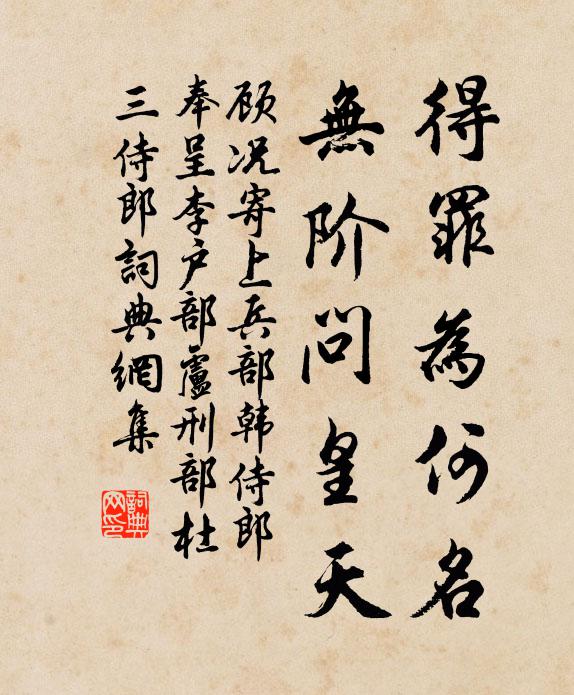 得罪為何名
無阶问皇天
顾况寄上兵部韩侍郎
奉呈李户部盧刑部杜
三侍郎詞典網集
詞典
网印